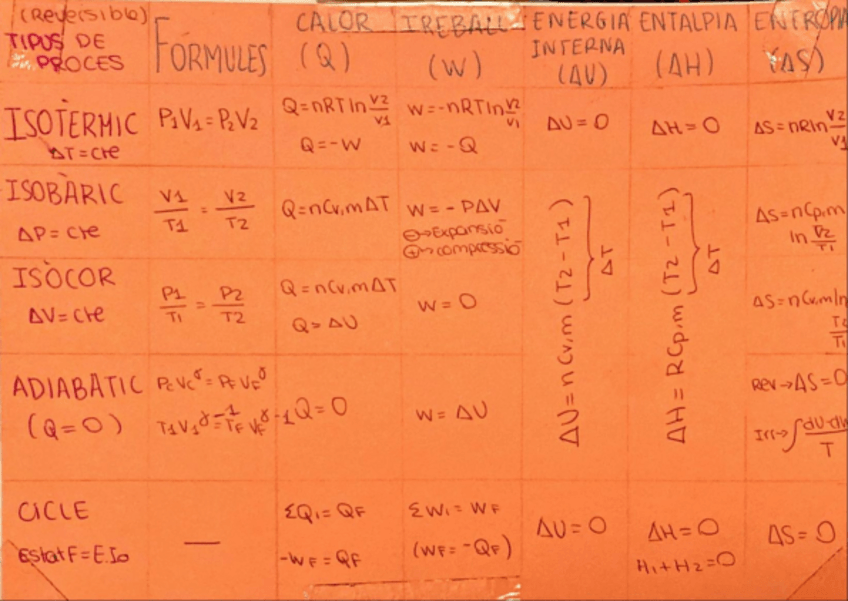 (Reversible)
TIPUS DE
PROCES
FÓRMULES
CALOR
(Q)
TREBALL
(W)
ENERGIA
INTERNA
(ΔU)
ENTALPIA
(ΔH)
ENTROPIA
(ΔS)
ISOTÈRMIC
ΔT=cte
P1V1=P2V2
Q=nRTln V2/V1
Q=-W
W=-nRTln V2/V1
W=-Q
ΔU=0
ΔH=0
ΔS=nRln V2/V1
ISOBÀRIC
ΔP=cte
V1/T1 = V2/T2
Q=nCv,mΔT
W=-PΔV
⊖→Expansió
⊕→compressió
ΔU=nCv,m(T2-T1)
ΔT
ΔH=RCp,m(T2-T1)
ΔT
ΔS=nCp,m
ln T2/T1
ISÒCOR
ΔV=cte
P1/T1 = P2/T2
Q=nCv,mΔT
Q=ΔU
W=0
ΔS=nCv,mln
T2/T1
ADIABÀTIC
(Q=0)
PcVc^γ=PFVF^γ
T1V1^γ-1=TFVF^γ-1
Q=0
W=ΔU
Rev→ΔS=0
Irr→∫dU-dW/T
CICLE
EstatF=E.Io
—
ΣQi=QF
-WF=QF
ΣWi=WF
(WF=-QF)
ΔU=0
ΔH=0
H1+H2=0
ΔS=0